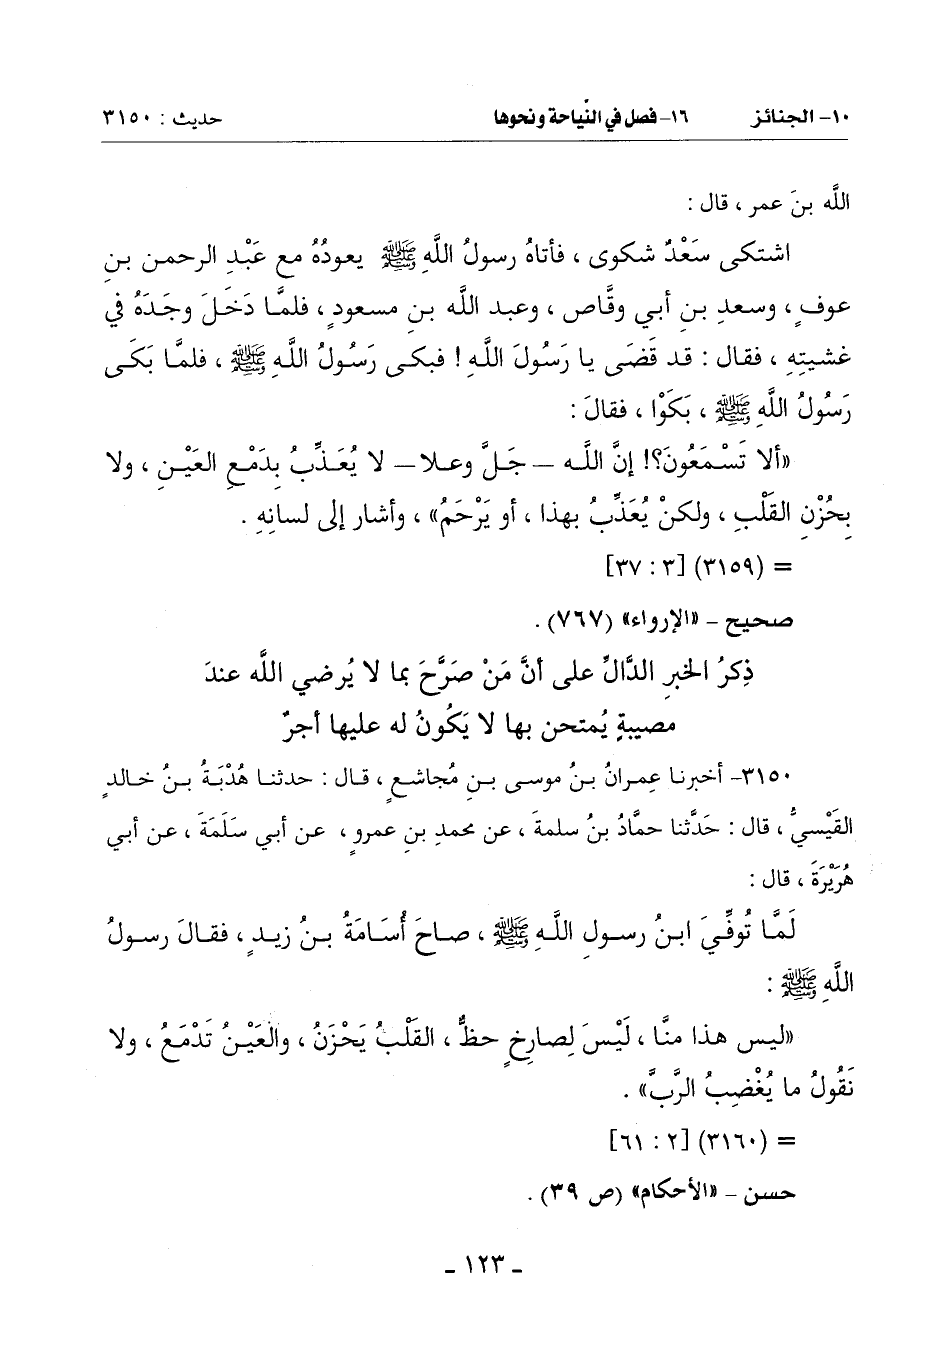 ١٠- الجنائز ١٦- فصل في النِّياحة ونحوها حديث : ٣١٥٠
اللَّه بنَ عمر ، قال :
اشتكى سَعْدٌ شكوى ، فأتاهُ رسولُ اللَّهِ ﷺ يعودُهُ مع عَبْدِ الرحمن بنِ
عوفٍ ، وسعدِ بنِ أبي وقَّاصٍ ، وعبد اللَّه بنِ مسعودٍ ، فلمَّا دَخَلَ وجَدَهُ في
غشيتِهِ ، فقال : قد قَضَى يا رَسُولَ اللهِ ! فبكى رَسُولُ اللَّهِ ﷺ ، فلمَّا بَكَى
رَسُولُ اللَّهِ ﷺ ، بَكَوْا ، فقالَ :
«ألا تَسْمَعُونَ؟! إنَّ اللَّه – جَلَّ وعلا – لا يُعَذِّبُ بدَمْعِ العَيْنِ ، ولا
بِحُزْنِ القَلْبِ ، ولكنْ يُعَذِّبُ بهذا ، أو يَرْحَمُ» ، وأشار إلى لسانِهِ .
= (٣١٥٩) [٣ : ٣٧]
صحيح - «الإرواء» (٧٦٧) .
ذِكرُ الخبرِ الدَّالِّ على أنَّ مَنْ صَرَّحَ بما لا يُرضي اللَّه عندَ
مصيبةٍ يُمتحن بها لا يَكُونُ له عليها أجرٌ
٣١٥٠- أخبرنا عِمرانُ بنُ موسى بنِ مُجاشعٍ ، قال : حدثنا هُدْبَةُ بنُ خالدٍ
القَيْسيُّ ، قال : حَدَّثنا حمَّادُ بنُ سلمةَ ، عن محمدِ بنِ عمرو ، عن أبي سَلَمَةَ ، عن أبي
هُرَيْرَةَ ، قال :
لَمَّا تُوفِّيَ ابنُ رسولِ اللَّهِ ﷺ ، صاحَ أُسَامَةُ بنُ زيدٍ ، فقالَ رسولُ
اللَّهِ ﷺ :
«ليس هذا منَّا ، لَيْسَ لِصارِخٍ حظٌّ ، القَلْبُ يَحْزَنُ ، والعَيْنُ تَدْمَعُ ، ولا
نَقُولُ ما يُغْضِبُ الرَّبَّ» .
= (٣١٦٠) [٢ : ٦١]
حسن - «الأحكام» (ص ٣٩) .
- ١٢٣ -